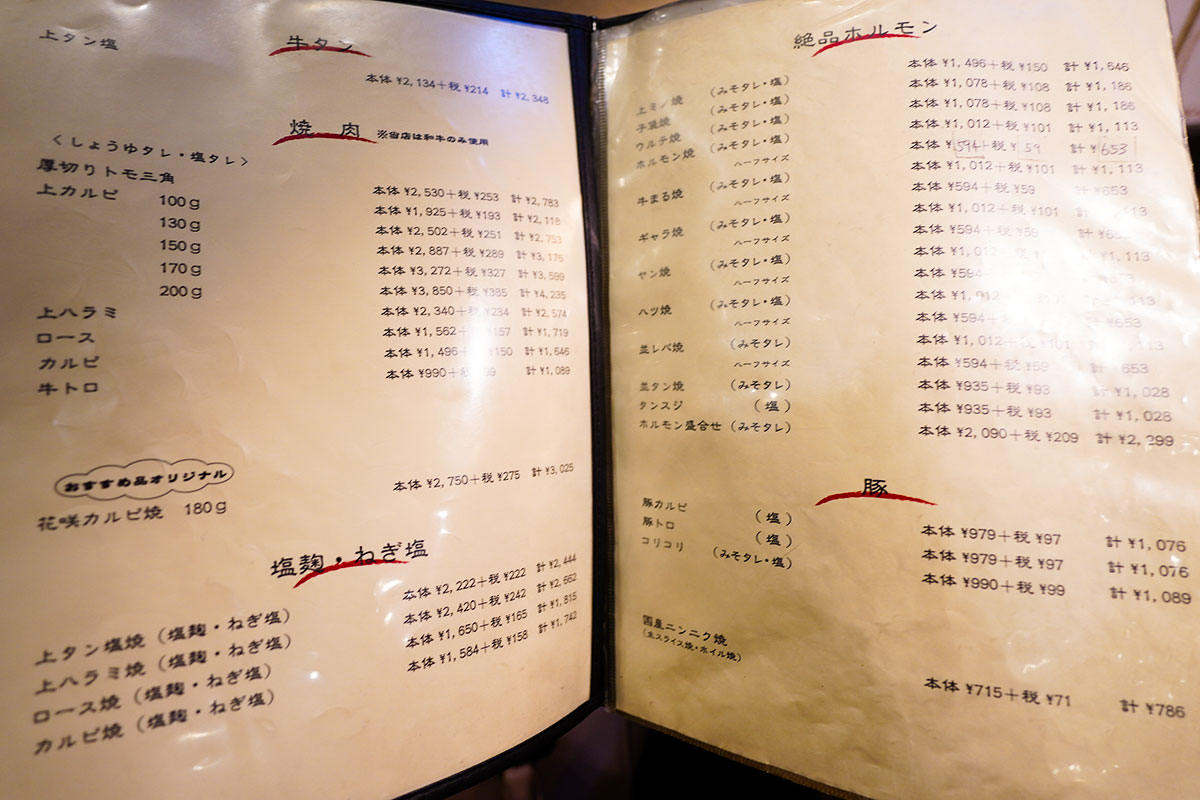 牛タン
上タン塩 本体 ¥2,134+税 ¥214 計 ¥2,348
焼 肉 ※当店は和牛のみ使用
<しょうゆタレ・塩タレ>
厚切りトモ三角 本体 ¥2,530+税 ¥253 計 ¥2,783
上カルビ 100g 本体 ¥1,925+税 ¥193 計 ¥2,118
130g 本体 ¥2,502+税 ¥251 計 ¥2,753
150g 本体 ¥2,887+税 ¥289 計 ¥3,176
170g 本体 ¥3,272+税 ¥327 計 ¥3,599
200g 本体 ¥3,850+税 ¥385 計 ¥4,235
上ハラミ 本体 ¥2,340+税 ¥234 計 ¥2,574
ロース 本体 ¥1,562+税 ¥157 計 ¥1,719
カルビ 本体 ¥1,496+税 ¥150 計 ¥1,646
牛トロ 本体 ¥990+税 ¥99 計 ¥1,089
おすすめ品オリジナル
花咲カルビ焼 180g 本体 ¥2,750+税 ¥275 計 ¥3,025
塩麹・ねぎ塩
上タン塩焼(塩麹・ねぎ塩) 本体 ¥2,222+税 ¥222 計 ¥2,444
上ハラミ焼(塩麹・ねぎ塩) 本体 ¥2,420+税 ¥242 計 ¥2,662
ロース焼(塩麹・ねぎ塩) 本体 ¥1,650+税 ¥165 計 ¥1,815
カルビ焼(塩麹・ねぎ塩) 本体 ¥1,584+税 ¥158 計 ¥1,742
絶品ホルモン
上ミノ焼 (みそタレ・塩) 本体 ¥1,496+税 ¥150 計 ¥1,646
子袋焼 (みそタレ・塩) 本体 ¥1,078+税 ¥108 計 ¥1,186
ウルテ焼 (みそタレ・塩) 本体 ¥1,078+税 ¥108 計 ¥1,186
ホルモン焼 (みそタレ・塩) 本体 ¥1,012+税 ¥101 計 ¥1,113
ハーフサイズ 本体 ¥594+税 ¥59 計 ¥653
牛まる焼 (みそタレ・塩) 本体 ¥1,012+税 ¥101 計 ¥1,113
ハーフサイズ 本体 ¥594+税 ¥59 計 ¥653
ギャラ焼 (みそタレ・塩) 本体 ¥1,012+税 ¥101 計 ¥1,113
ハーフサイズ 本体 ¥594+税 ¥59 計
ヤン焼 (みそタレ・塩) 本体 ¥1,012
ハーフサイズ 本体 ¥594
ハツ焼 (みそタレ・塩) 本体 ¥1,012
ハーフサイズ 本体 ¥594+税 計 ¥653
並レバ焼 (みそタレ) 本体 ¥1,012+税
ハーフサイズ 本体 ¥594+税 ¥59 計 ¥653
並タン焼 (みそタレ) 本体 ¥935+税 ¥93 計 ¥1,028
タンスジ (塩) 本体 ¥935+税 ¥93 計 ¥1,028
ホルモン盛合せ (みそタレ) 本体 ¥2,090+税 ¥209 計 ¥2,299
豚
豚カルビ (塩) 本体 ¥979+税 ¥97 計 ¥1,076
豚トロ (塩) 本体 ¥979+税 ¥97 計 ¥1,076
コリコリ (みそタレ・塩) 本体 ¥990+税 ¥99 計 ¥1,089
国産ニンニク焼
(生スライス焼・ホイル焼) 本体 ¥715+税 ¥71 計 ¥786